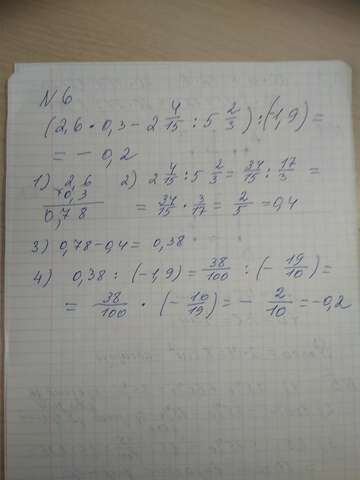 N 6
(2,6 · 0,3 - 2 4/15 : 5 2/3) : (-1,9) =
= - 0,2
1) 2,6
× 0,3
0,78
2) 2 4/15 : 5 2/3 = 34/15 : 17/3 =
= 34/15 · 3/17 = 2/5 = 0,4
3) 0,78 - 0,4 = 0,38
4) 0,38 : (-1,9) = 38/100 : (- 19/10) =
= 38/100 · (- 10/19) = - 2/10 = -0,2